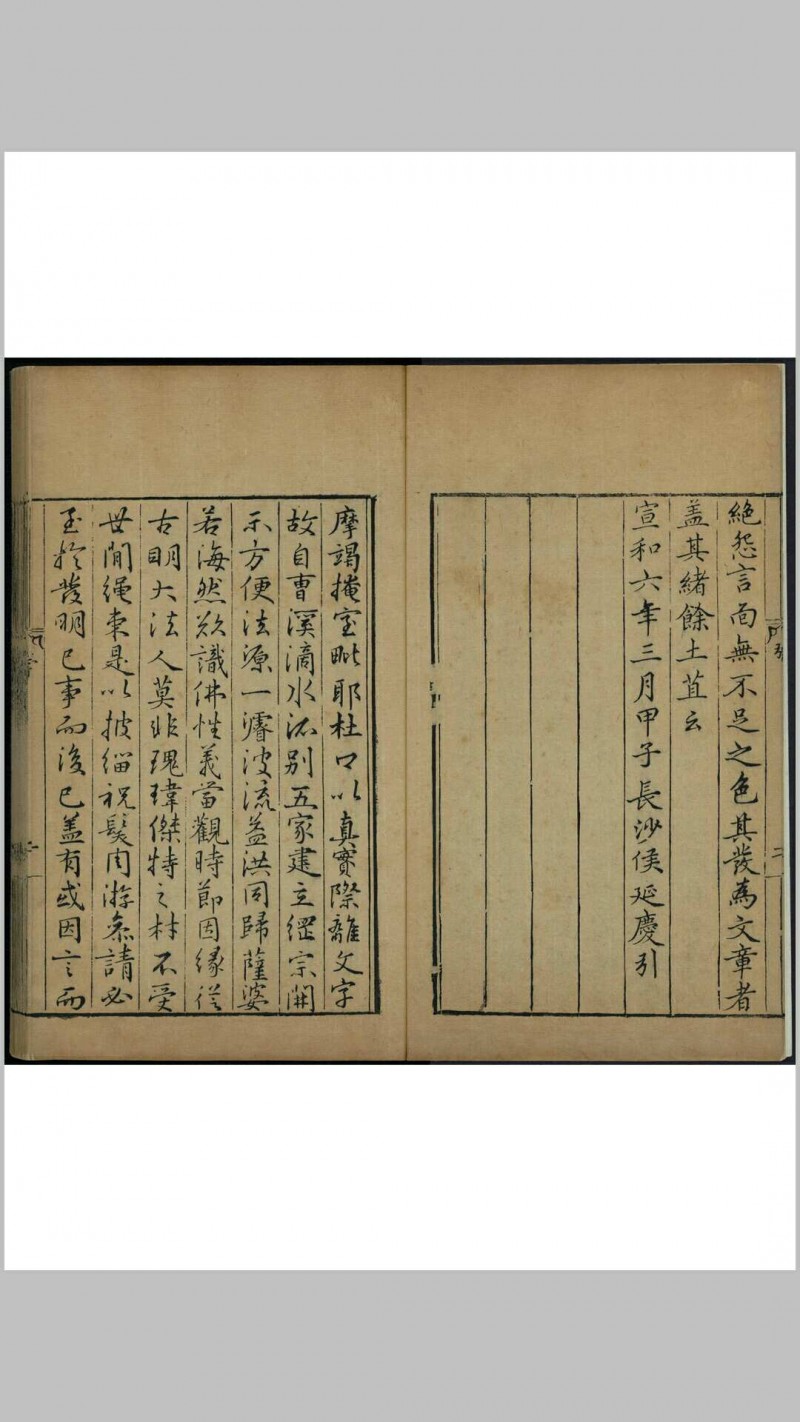 絶怨言面無不足之色其發為文章者
盖其緒餘土苴云
宣和六年三月甲子長沙侯延慶引
摩竭掩室毗耶杜口以真實際離文字
故自曹溪滴水派别五家建立綱宗開
示方便法源一濬波流益洪同歸薩婆
若海然欲識佛性義當觀時節因縁從
古明大法人莫非瑰瑋傑特之材不受
世間繩束是以披緇祝髮周游叅請必
至於發明己事而後已盖有或因言而